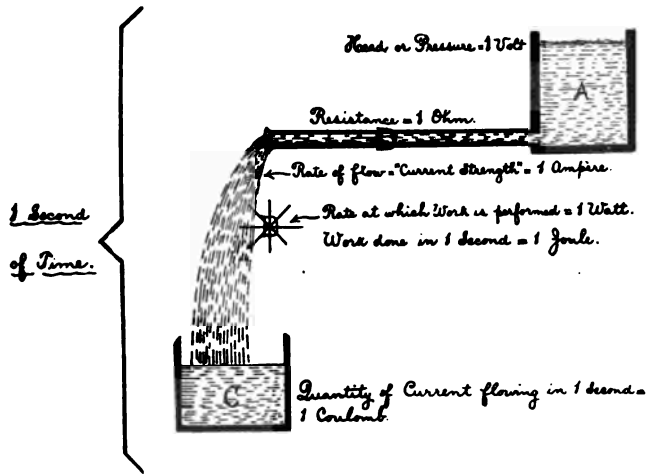 Head or Pressure = 1 Volt
A
Resistance = 1 Ohm.
Rate of flow = "Current Strength" = 1 Ampère.
1 Second
of Time.
Rate at which Work is performed = 1 Watt.
Work done in 1 Second = 1 Joule.
C
Quantity of Current flowing in 1 Second =
1 Coulomb.